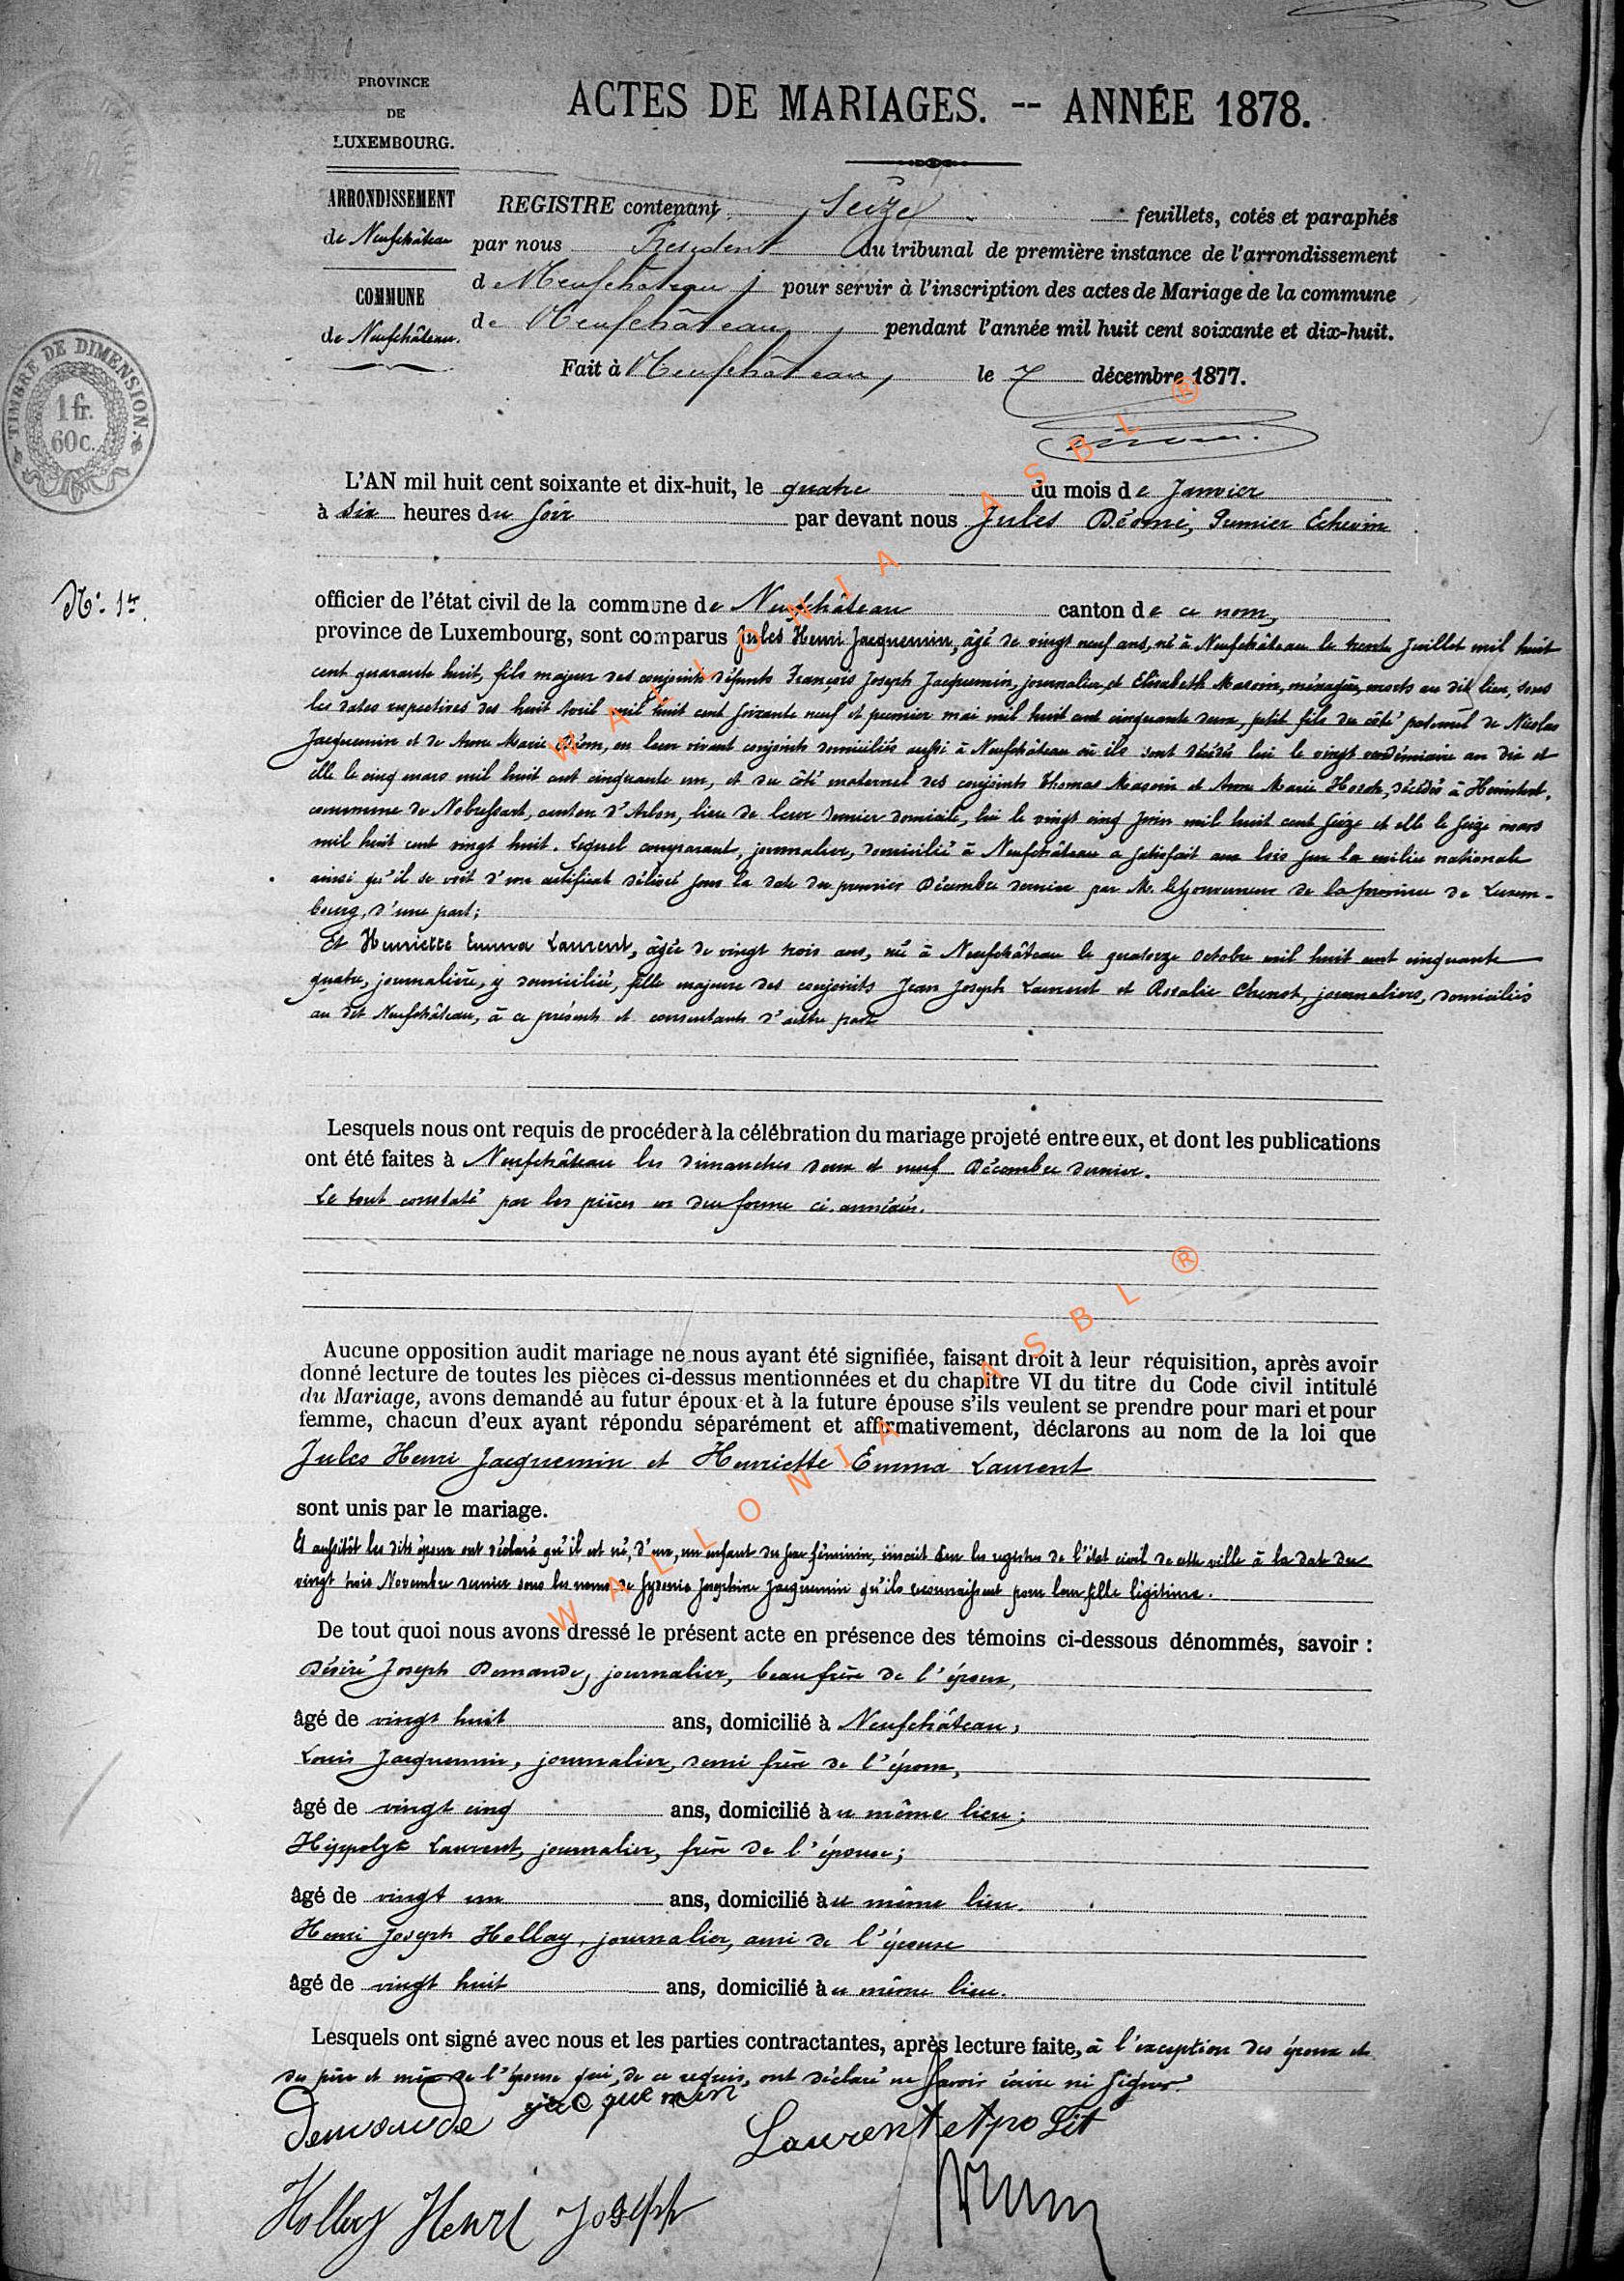 PROVINCE
DE
LUXEMBOURG.
ARRONDISSEMENT
de Neufchâteau
COMMUNE
de Neufchâteau.
TIMBRE DE DIMENSION.
1 fr.
60 c.
ACTES DE MARIAGES. -- ANNÉE 1878.
REGISTRE contenant Seize feuillets, cotés et paraphés
par nous Président du tribunal de première instance de l'arrondissement
de Neufchâteau pour servir à l'inscription des actes de Mariage de la commune
de Neufchâteau, pendant l'année mil huit cent soixante et dix-huit.
Fait à Neufchâteau, le 7 décembre 1877.
N° 1er.
L'AN mil huit cent soixante et dix-huit, le quatre du mois de Janvier
à six heures du soir par devant nous Jules Déome, Premier Echevin
officier de l'état civil de la commune de Neufchâteau canton de ce nom,
province de Luxembourg, sont comparus Jules Henri Jacquemin, âgé de vingt neuf ans, né à Neufchâteau le trente Juillet mil huit
cent quarante huit, fils majeur des conjoints défunts François Joseph Jacquemin, journalier, et Elisabeth Masoin, ménagère, morts au dit lieu, sous
les dates respectives des huit avril mil huit cent soixante neuf et premier mai mil huit cent cinquante deux, petit fils du côté paternel de Nicolas
Jacquemin et de Anne Marie en leur vivant conjoints domiciliés aussi à Neufchâteau où ils sont décédés lui le vingt vendémiaire an dix et
elle le cinq mars mil huit cent cinquante un, et du côté maternel des conjoints Thomas Masoin et Anne Marie décédés à Heinstert,
commune de Nobressart, canton d'Arlon, lieu de leur dernier domicile, lui le vingt cinq Juin mil huit cent seize et elle le seize mars
mil huit cent vingt huit. Lequel comparant, journalier, domicilié à Neufchâteau a satisfait aux lois sur la milice nationale
ainsi qu'il se voit d'un certificat délivré sous la date du premier Décembre dernier par M. le Gouverneur de la province de Luxem-
bourg, d'une part;
Et Henriette Emma Laurent, âgée de vingt trois ans, née à Neufchâteau le quatorze octobre mil huit cent cinquante
quatre, journalière, y domiciliée, fille majeure des conjoints Jean Joseph Laurent et Rosalie Chenot, journaliers, domiciliés
au dit Neufchâteau, à ce présents et consentants d'autre part
Lesquels nous ont requis de procéder à la célébration du mariage projeté entre eux, et dont les publications
ont été faites à Neufchâteau les dimanches deux et neuf Décembre dernier.
Le tout constaté par les pièces en due forme ci-annexées.
Aucune opposition audit mariage ne nous ayant été signifiée, faisant droit à leur réquisition, après avoir
donné lecture de toutes les pièces ci-dessus mentionnées et du chapitre VI du titre du Code civil intitulé
du Mariage, avons demandé au futur époux et à la future épouse s'ils veulent se prendre pour mari et pour
femme, chacun d'eux ayant répondu séparément et affirmativement, déclarons au nom de la loi que
Jules Henri Jacquemin et Henriette Emma Laurent
sont unis par le mariage.
Et aussitôt les dits époux ont déclaré qu'il est né, d'eux, un enfant du sexe féminin, inscrit sur les registres de l'état civil de cette ville à la date du
vingt trois Novembre dernier sous les noms de Sydonie Joséphine Jacquemin qu'ils reconnaissent pour leur fille légitime.
De tout quoi nous avons dressé le présent acte en présence des témoins ci-dessous dénommés, savoir :
Désiré Joseph Demande, journalier, beau frère de l'époux,
âgé de vingt huit ans, domicilié à Neufchâteau,
Louis Jacquemin, journalier, demi frère de l'époux,
âgé de vingt cinq ans, domicilié à ce même lieu;
Hippolyte Laurent, journalier, frère de l'épouse;
âgé de vingt un ans, domicilié à ce même lieu.
Henri Joseph Hollay, journalier, ami de l'épouse
âgé de vingt huit ans, domicilié à ce même lieu.
Lesquels ont signé avec nous et les parties contractantes, après lecture faite, à l'exception des époux et
des père et mère de l'épouse qui, de ce requis, ont déclaré ne savoir écrire ni signer.
Demande jacquemin
Laurent etpolit
Hollay Henri Joseph
WALLONIA ASBL ®
WALLONIA ASBL ®